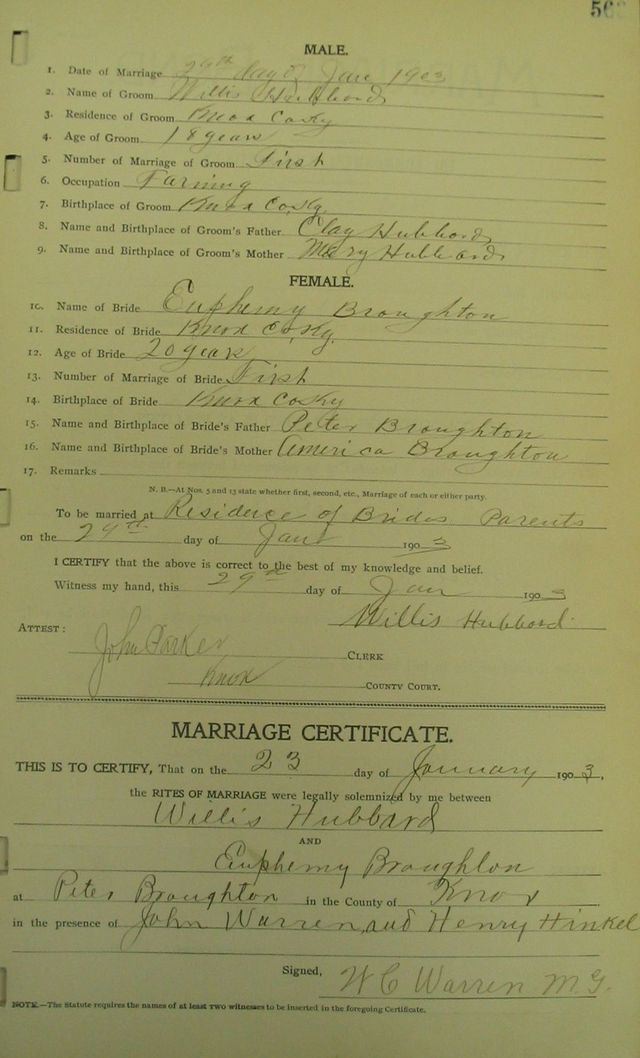 56
MALE.
1. Date of Marriage 29th day of Jan 1903
2. Name of Groom Willis Hubbard
3. Residence of Groom Knox Co Ky
4. Age of Groom 18 years
5. Number of Marriage of Groom First
6. Occupation Farming
7. Birthplace of Groom Knox Co, Ky,
8. Name and Birthplace of Groom's Father Clay Hubbard,
9. Name and Birthplace of Groom's Mother Mary Hubbard
FEMALE.
10. Name of Bride Euphemy Broughton
11. Residence of Bride Knox Co, Ky.
12. Age of Bride 20 years
13. Number of Marriage of Bride First
14. Birthplace of Bride Knox Co Ky
15. Name and Birthplace of Bride's Father Peter Broughton
16. Name and Birthplace of Bride's Mother America Broughton
17. Remarks
N. B.—At Nos. 5 and 13 state whether first, second, etc., Marriage of each or either party.
To be married at Residence of Brides Parents
on the 29th day of Jan 1903
I CERTIFY that the above is correct to the best of my knowledge and belief.
Witness my hand, this 29th day of Jan 1903
Willis Hubbard
ATTEST:
John Parker CLERK
Knox COUNTY COURT.
MARRIAGE CERTIFICATE.
THIS IS TO CERTIFY, That on the 23 day of January 1903,
the RITES OF MARRIAGE were legally solemnized by me between
Willis Hubbard
AND
Euphemy Broughton
at Peter Broughton in the County of Knox
in the presence of John Warren and Henry Hinkel
Signed, W C Warren M G.
NOTE.—The Statute requires the names of at least two witnesses to be inserted in the foregoing Certificate.